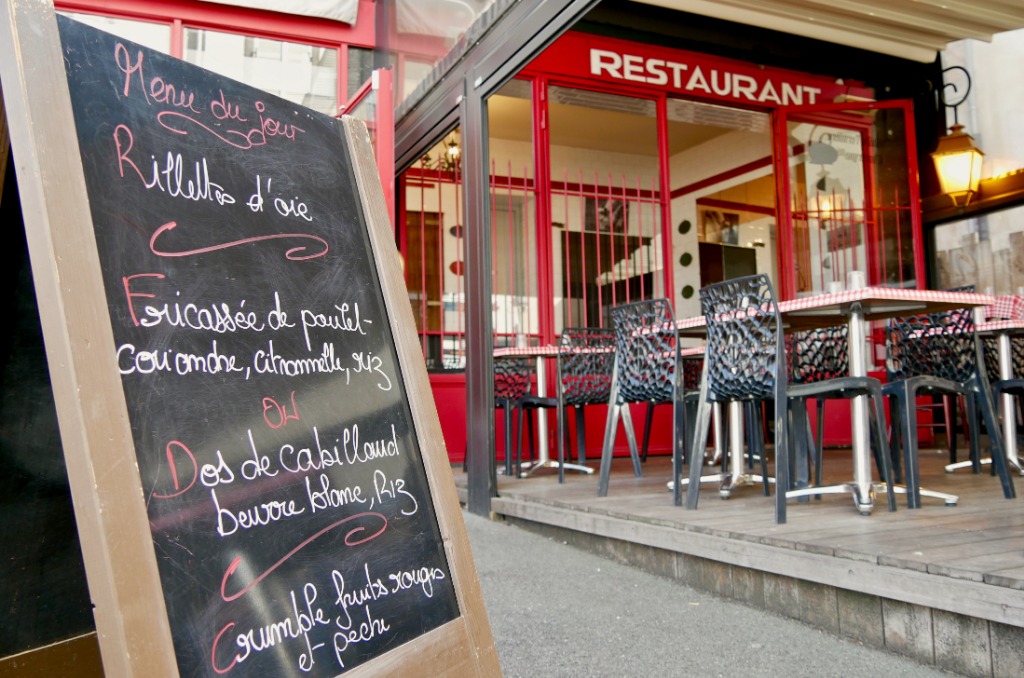 Menu du jour
Rillettes d'oie
Fricassée de poulet
Coriandre, citronnelle, riz
ou
Dos de cabillaud
beurre blanc, Riz
Crumble fruits rouges
et pechi
RESTAURANT